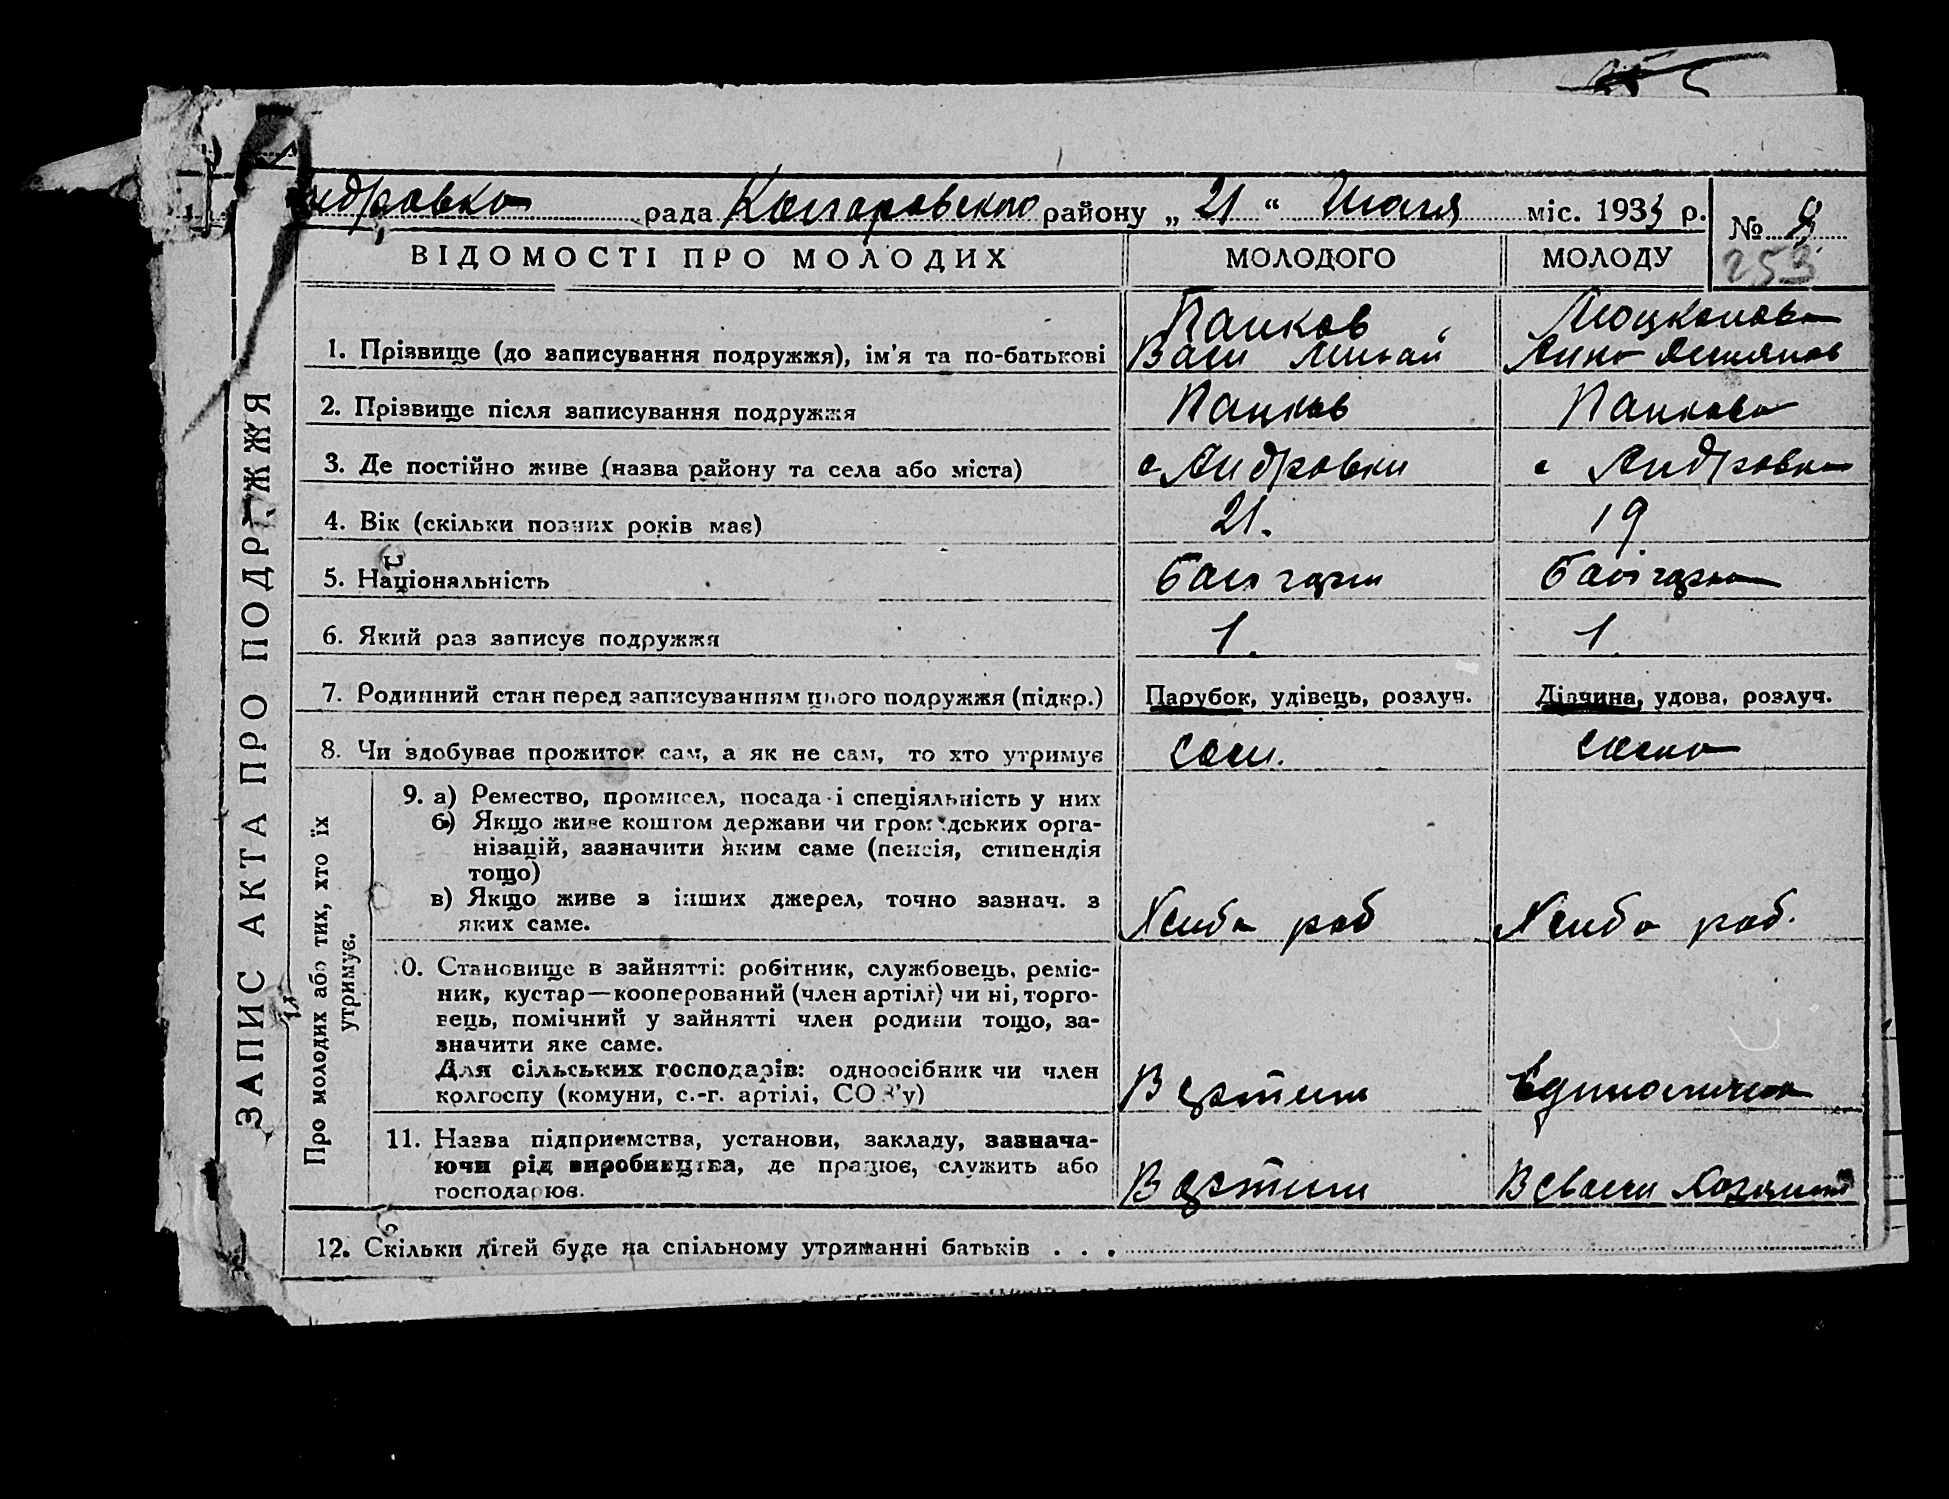 ндровка рада Коларовского району „ 21 “ Июля міс. 1933 р.
№ 8
253
ВІДОМОСТІ ПРО МОЛОДИХ МОЛОДОГО МОЛОДУ
Панков
1. Прізвище (до записування подружжя), ім’я та по-батькові Васи
Анна
2. Прізвище після записування подружжя Панков Панкова
3. Де постійно живе (назва району та села або міста) с Андровки с Андровка
4. Вік (скільки повних років має) 21. 19
5. Національність Болгарин Болгарка
6. Який раз записує подружжя 1. 1
7. Родинний стан перед записуванням цього подружжя (підкр.) Парубок, удівець, розлуч. Дівчина, удова, розлуч.
8. Чи здобуває прожиток сам, а як не сам, то хто утримує сам. сама
9. а) Ремество, промисел, посада і спеціяльність у них
б) Якщо живе коштом держави чи громадських орга-
нізацій, зазначити яким саме (пенсія, стипендія
тощо)
в) Якщо живе з інших джерел, точно зазнач. з
яких саме. Хлиба роб Хлиба роб.
10. Становище в зайнятті: робітник, службовець, реміс-
ник, кустар—кооперований (член артілі) чи ні, торго-
вець, помічний у зайнятті член родини тощо, за-
значити яке саме.
Для сільських господарів: одноосібник чи член
колгоспу (комуни, с.-г. артілі, СОЗ’у) В артили Единоличка
11. Назва підприємства, установи, закладу, зазнача-
ючи рід виробництва, де працює, служить або
господарює. В артили В своем
12. Скільки дітей буде на спільному утриманні батьків . . .
ЗАПИС АКТА ПРО ПОДРУЖЖЯ
Про молодих або тих, хто їх
утримує.